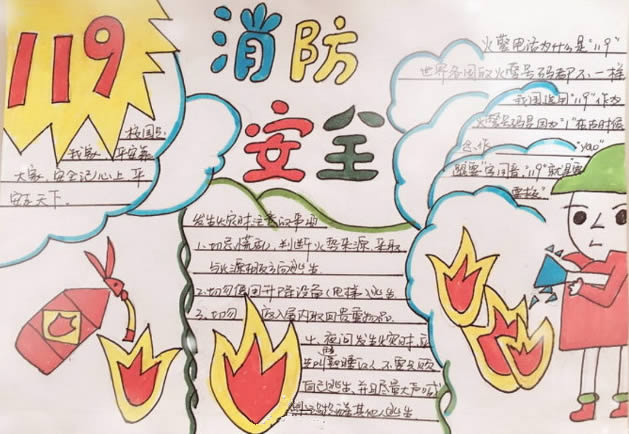 119
消防
安全
校园是
我家,平安靠
大家,安全记心上平
安在天下。
火警电话为什么是"119"
世界各国的火警号码都不一样
我国选用"119"作为
火警号码是因为"1"在古时候
念作"yao"
跟"要"字同音,"119"就是
发生火灾时注意的事项
1.切忌慌乱,判断火势来源,采取
与火源相反方向逃生
2.切勿使用升降设备(电梯)逃生
3.切勿 返入屋内取回贵重物品
4.夜间发生火灾时,应
先叫醒熟睡的人,不要只顾
自己逃生,并且尽量大声喊
其他人逃生